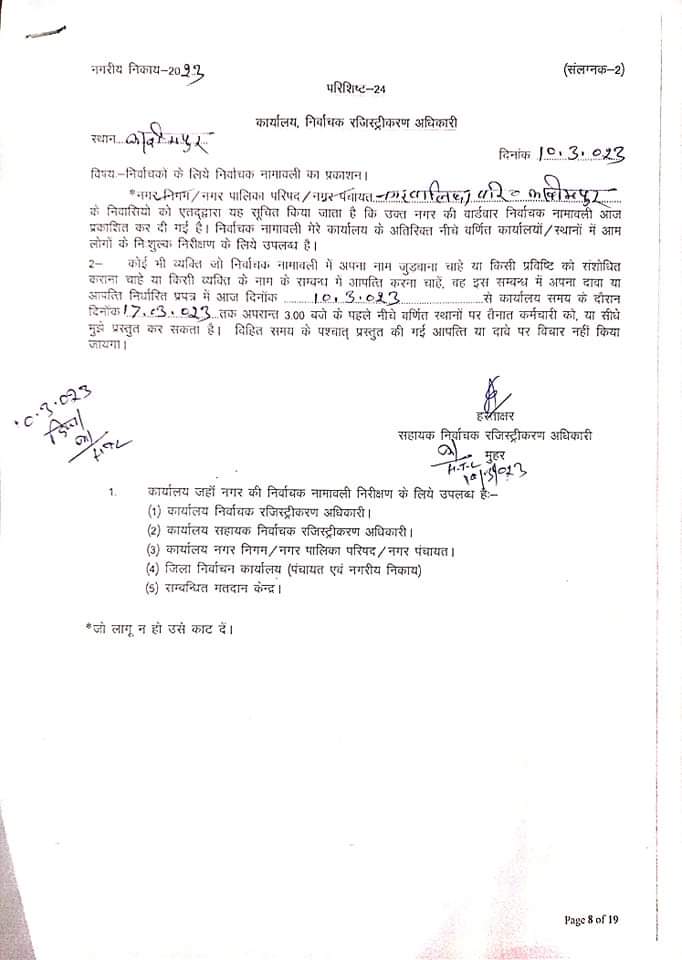 नगरीय निकाय–2023
(संलग्नक–2)
परिशिष्ट–24
कार्यालय, निर्वाचक रजिस्ट्रीकरण अधिकारी
स्थान
दिनांक 10.3.023
विषय–निर्वाचकों के लिये निर्वाचक नामावली का प्रकाशन।
*नगर निगम/नगर पालिका परिषद/नगर पंचायत
के निवासियो को एतद्द्वारा यह सूचित किया जाता है कि उक्त नगर की वार्डवार निर्वाचक नामावली आज
प्रकाशित कर दी गई है। निर्वाचक नामावली मेरे कार्यालय के अतिरिक्त नीचे वर्णित कार्यालयों/स्थानों में आम
लोगों के निःशुल्क निरीक्षण के लिये उपलब्ध है।
2– कोई भी व्यक्ति जो निर्वाचक नामावली में अपना नाम जुडवाना चाहे या किसी प्रविष्टि को संशोधित
कराना चाहे या किसी व्यक्ति के नाम के सम्बन्ध में आपत्ति करना चाहें, वह इस सम्बन्ध में अपना दावा या
आपत्ति निर्धारित प्रपत्र में आज दिनॉक 10.3.023 से कार्यालय समय के दौरान
दिनॉक 17.03.023 तक अपरान्त 3.00 बजे के पहले नीचे वर्णित स्थानों पर तैनात कर्मचारी को, या सीधे
मुझे प्रस्तुत कर सकता है। विहित समय के पश्चात् प्रस्तुत की गई आपत्ति या दावे पर विचार नहीं किया
जायगा।
10.3.023
हस्ताक्षर
सहायक निर्वाचक रजिस्ट्रीकरण अधिकारी
मुहर
1. कार्यालय जहाँ नगर की निर्वाचक नामावली निरीक्षण के लिये उपलब्ध हैः–
(1) कार्यालय निर्वाचक रजिस्ट्रीकरण अधिकारी।
(2) कार्यालय सहायक निर्वाचक रजिस्ट्रीकरण अधिकारी।
(3) कार्यालय नगर निगम/नगर पालिका परिषद/नगर पंचायत।
(4) जिला निर्वाचन कार्यालय (पंचायत एवं नगरीय निकाय)
(5) सम्बन्धित मतदान केन्द्र।
*जो लागू न हो उसे काट दें।
Page 8 of 19